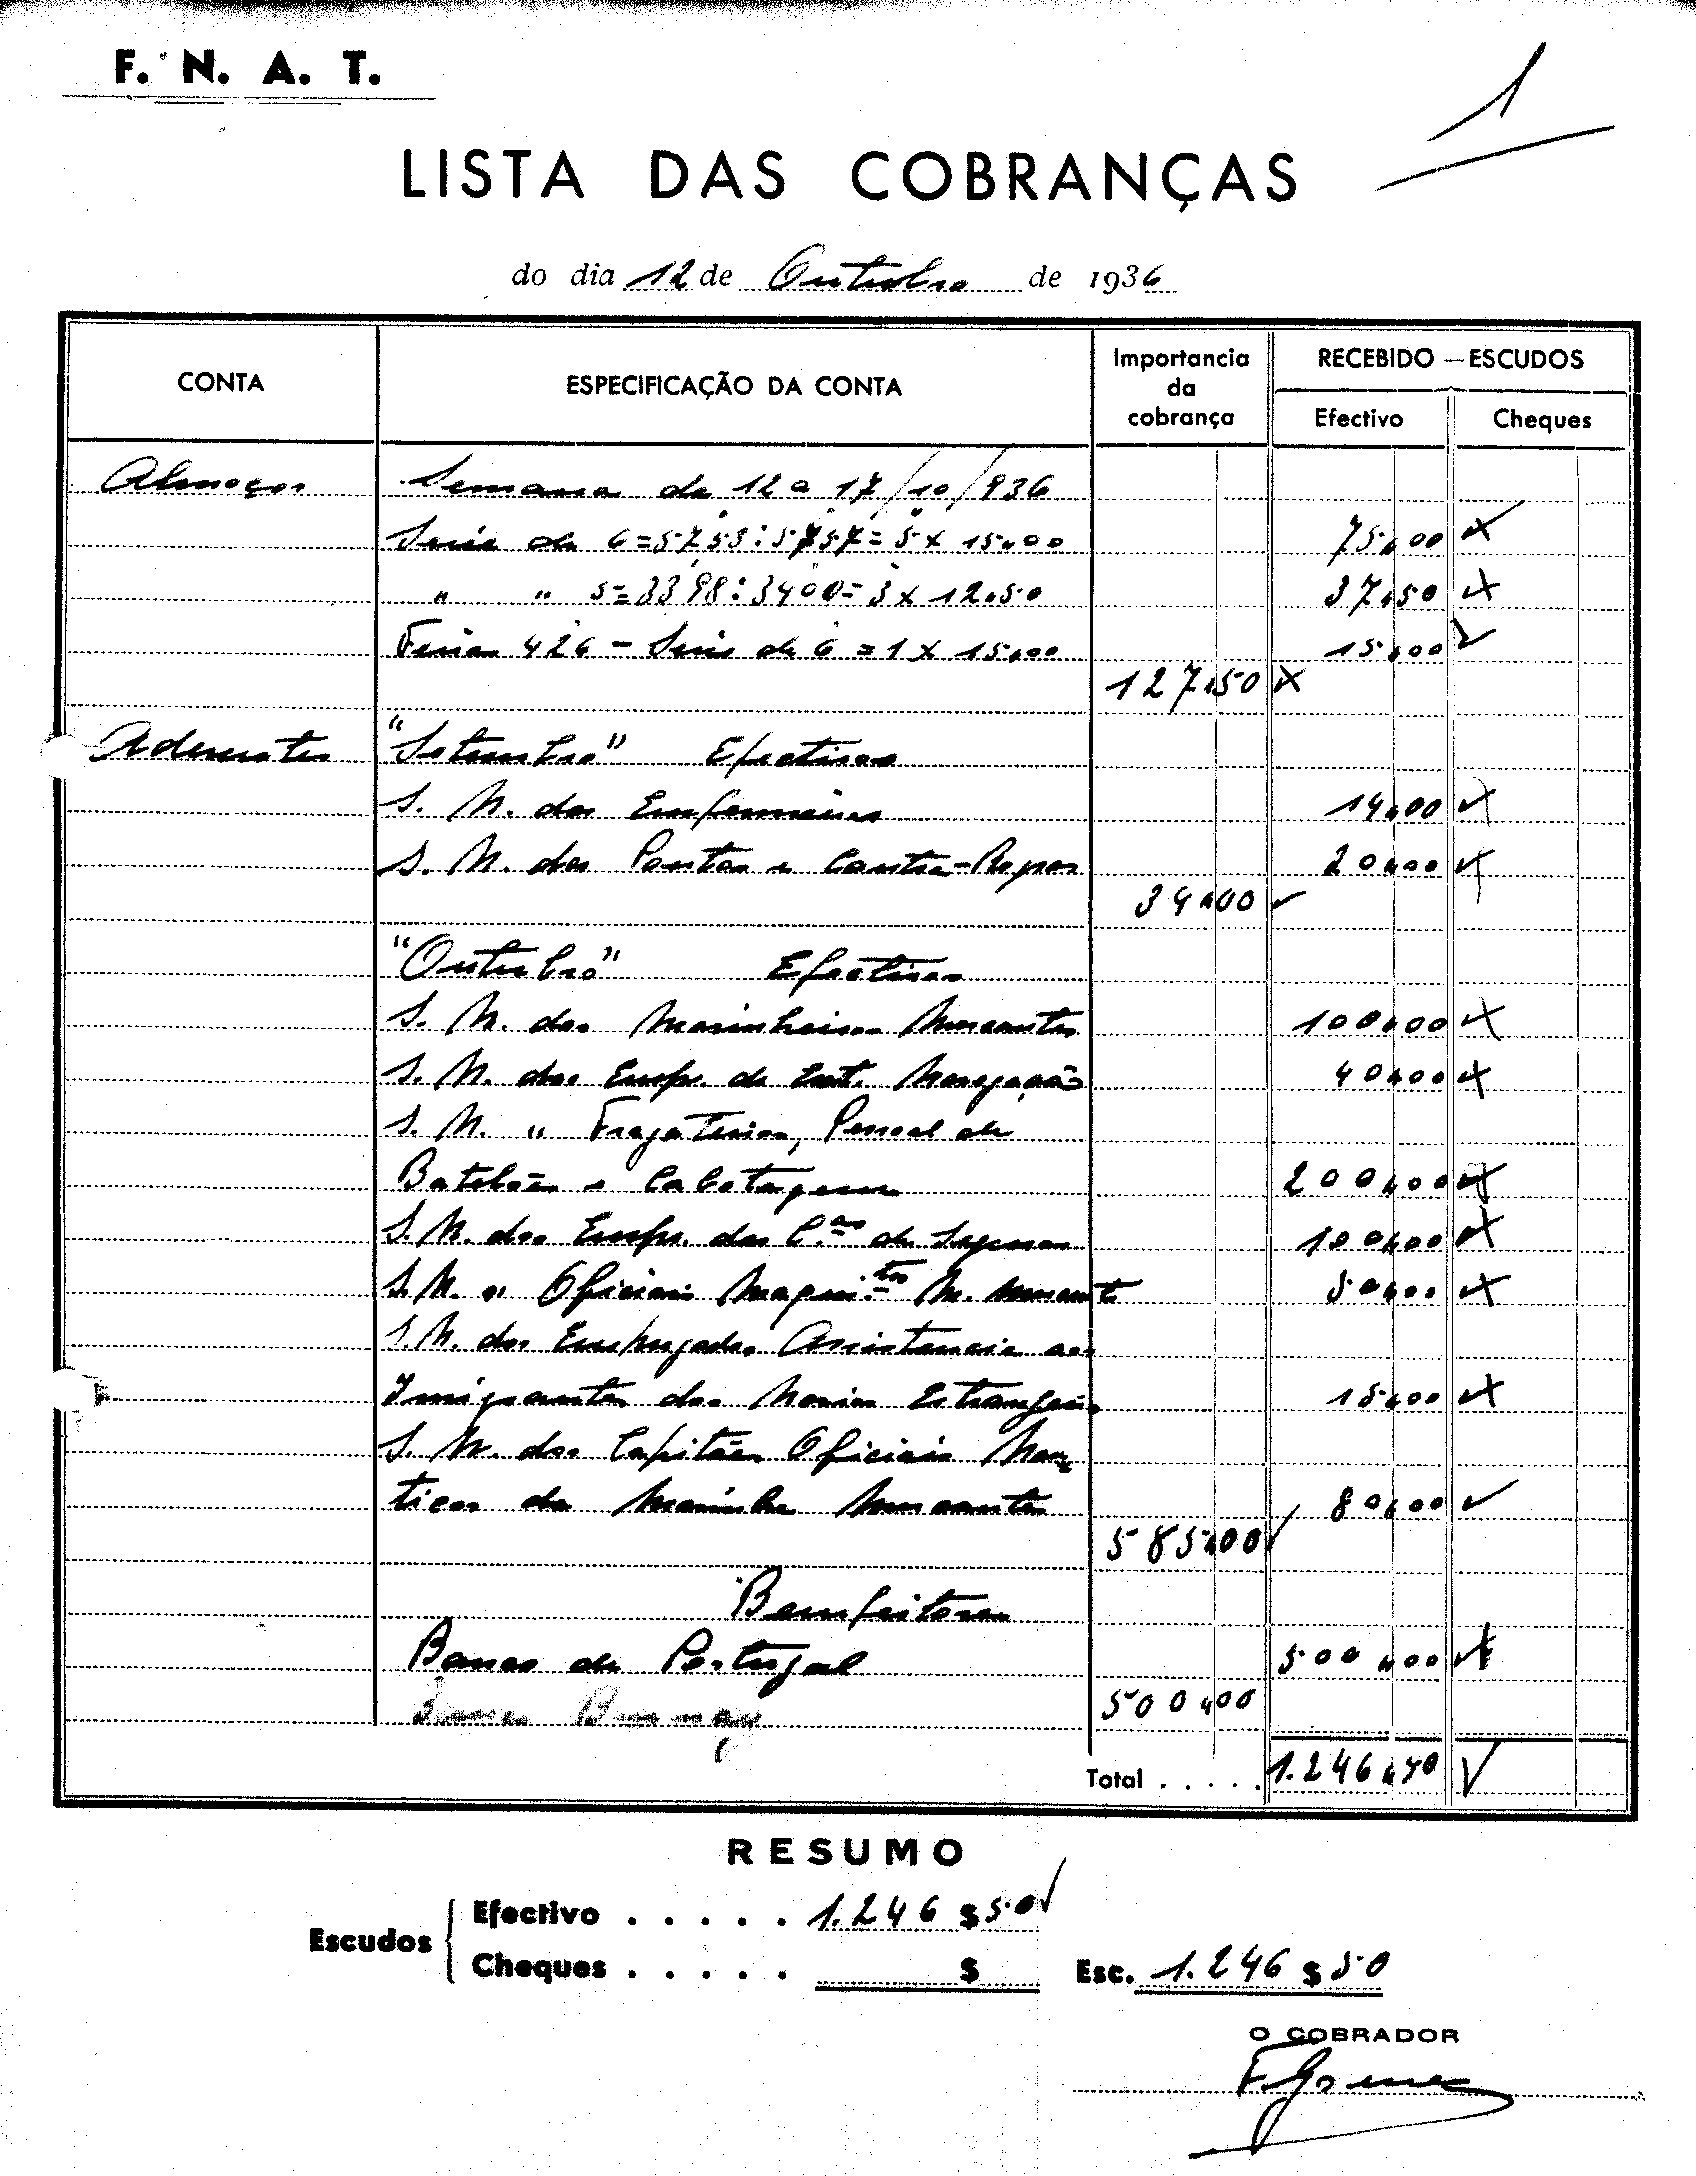 F. N. A. T.
1
LISTA DAS COBRANÇAS
do dia 12 de Outubro de 1936
CONTA
ESPECIFICAÇÃO DA CONTA
Importancia da cobrança
RECEBIDO — ESCUDOS
Efectivo
Cheques
Almoços Semana de 12 a 17/10/936
Serie de 6=5753:5757=5x15$00 75$00
" " 5=3398:3400=3x12$50 37$50
Ferias 426 - Serie de 6 = 1 x 15$00 15$00
127$50
Aderentes "Setembro" Efectivos
S. N. dos Enfermeiros 14$00
S. N. dos Pontos e Contra-Regras 20$00
34$00
"Outubro" Efectivos
S. N. dos Marinheiros Mercantes 100$00
S. N. dos Emp. de Navegação 40$00
S. N. " Fragateiros, Pessoal de
Batelões e Cabotagem 200$00
S. N. dos Emp. das C.as de Seguros 100$00
S. N. " Oficiais Maqui.tas M. Mercante 50$00
S. N. dos Empregados Assistencia aos
Imigrantes dos Navios Estrangeiros 15$00
S. N. dos Capitães Oficiais Nau-
ticos da Marinha Mercante 80$00
585$00
Bemfeitores
Banco de Portugal 500$00
Banco Burnay 500$00
Total . . . . . 1.246$50
RESUMO
Escudos
Efectivo . . . . . 1.246$50
Cheques . . . . . $
Esc. 1.246$50
O COBRADOR
F. Gomes